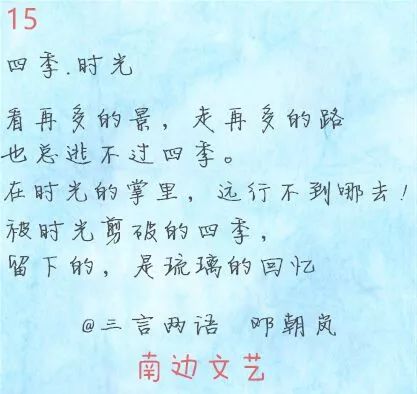 15
四季.时光
看再多的景，走再多的路
也总逃不过四季。
在时光的掌里，远行不到哪去！
被时光剪破的四季，
留下的，是琉璃的回忆
@三言两语 邓朝岚
南边文艺